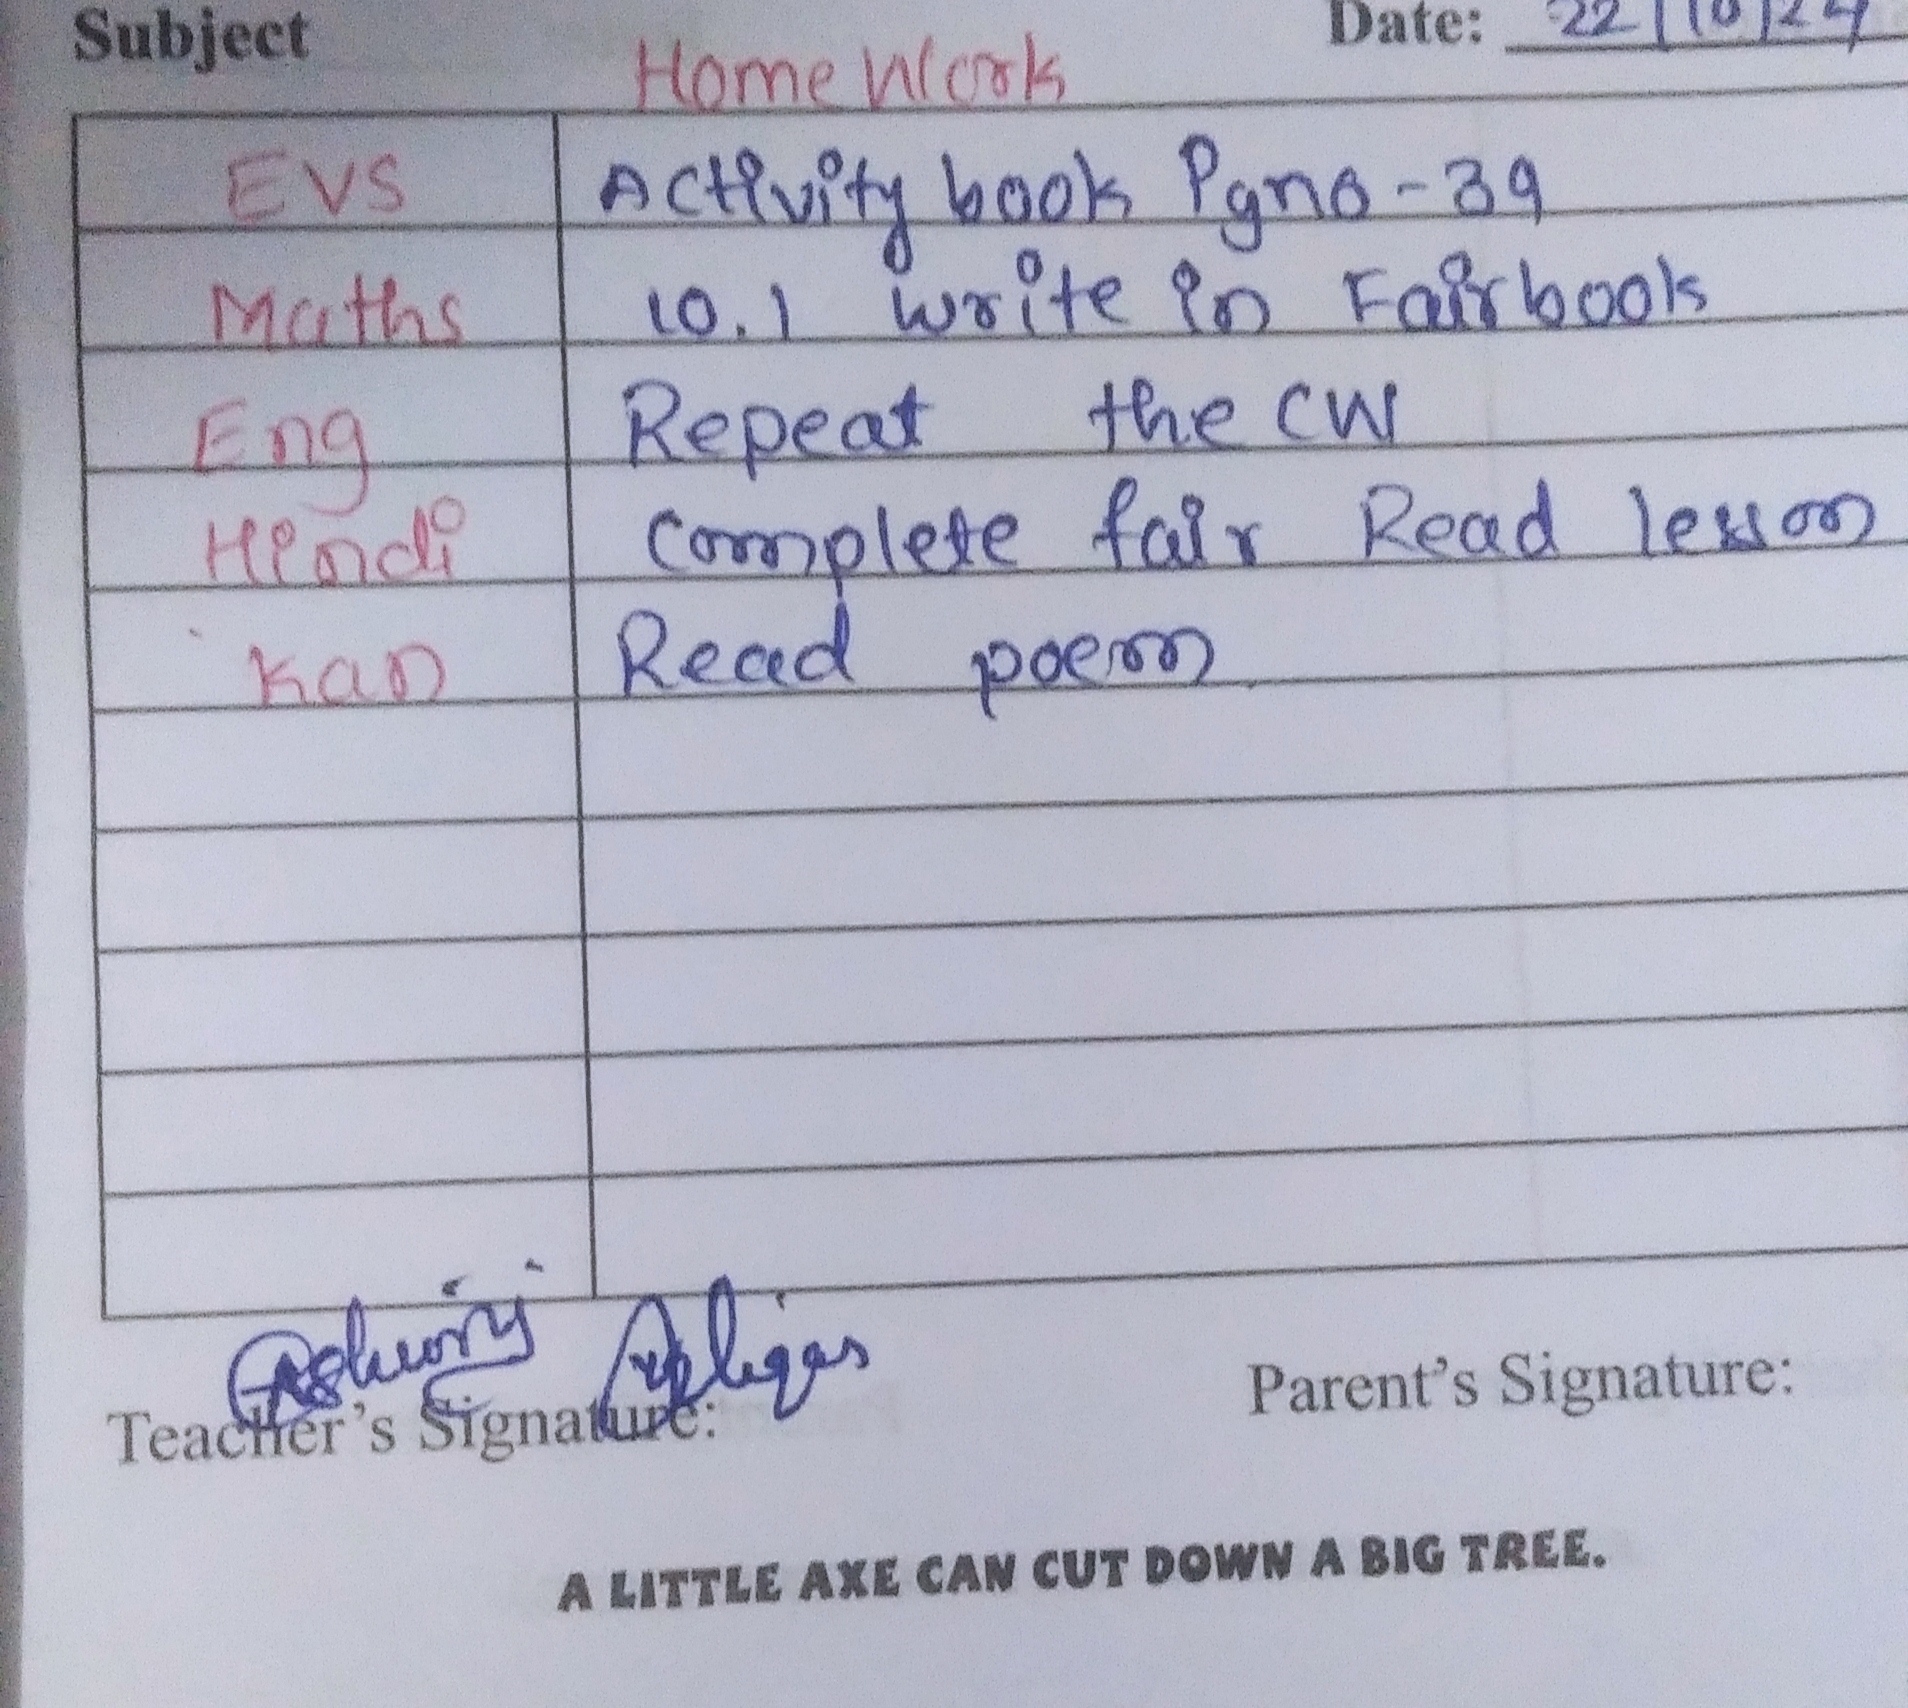 Subject Date: 22/10/24
Home Work
EVS Activity book Pgno-39
Maths 10.1 write in Fairbook
Eng Repeat the CW
Hindi Complete fair Read lesson
Kan Read poem
Teacher's Signature: Parent's Signature:
A LITTLE AXE CAN CUT DOWN A BIG TREE.